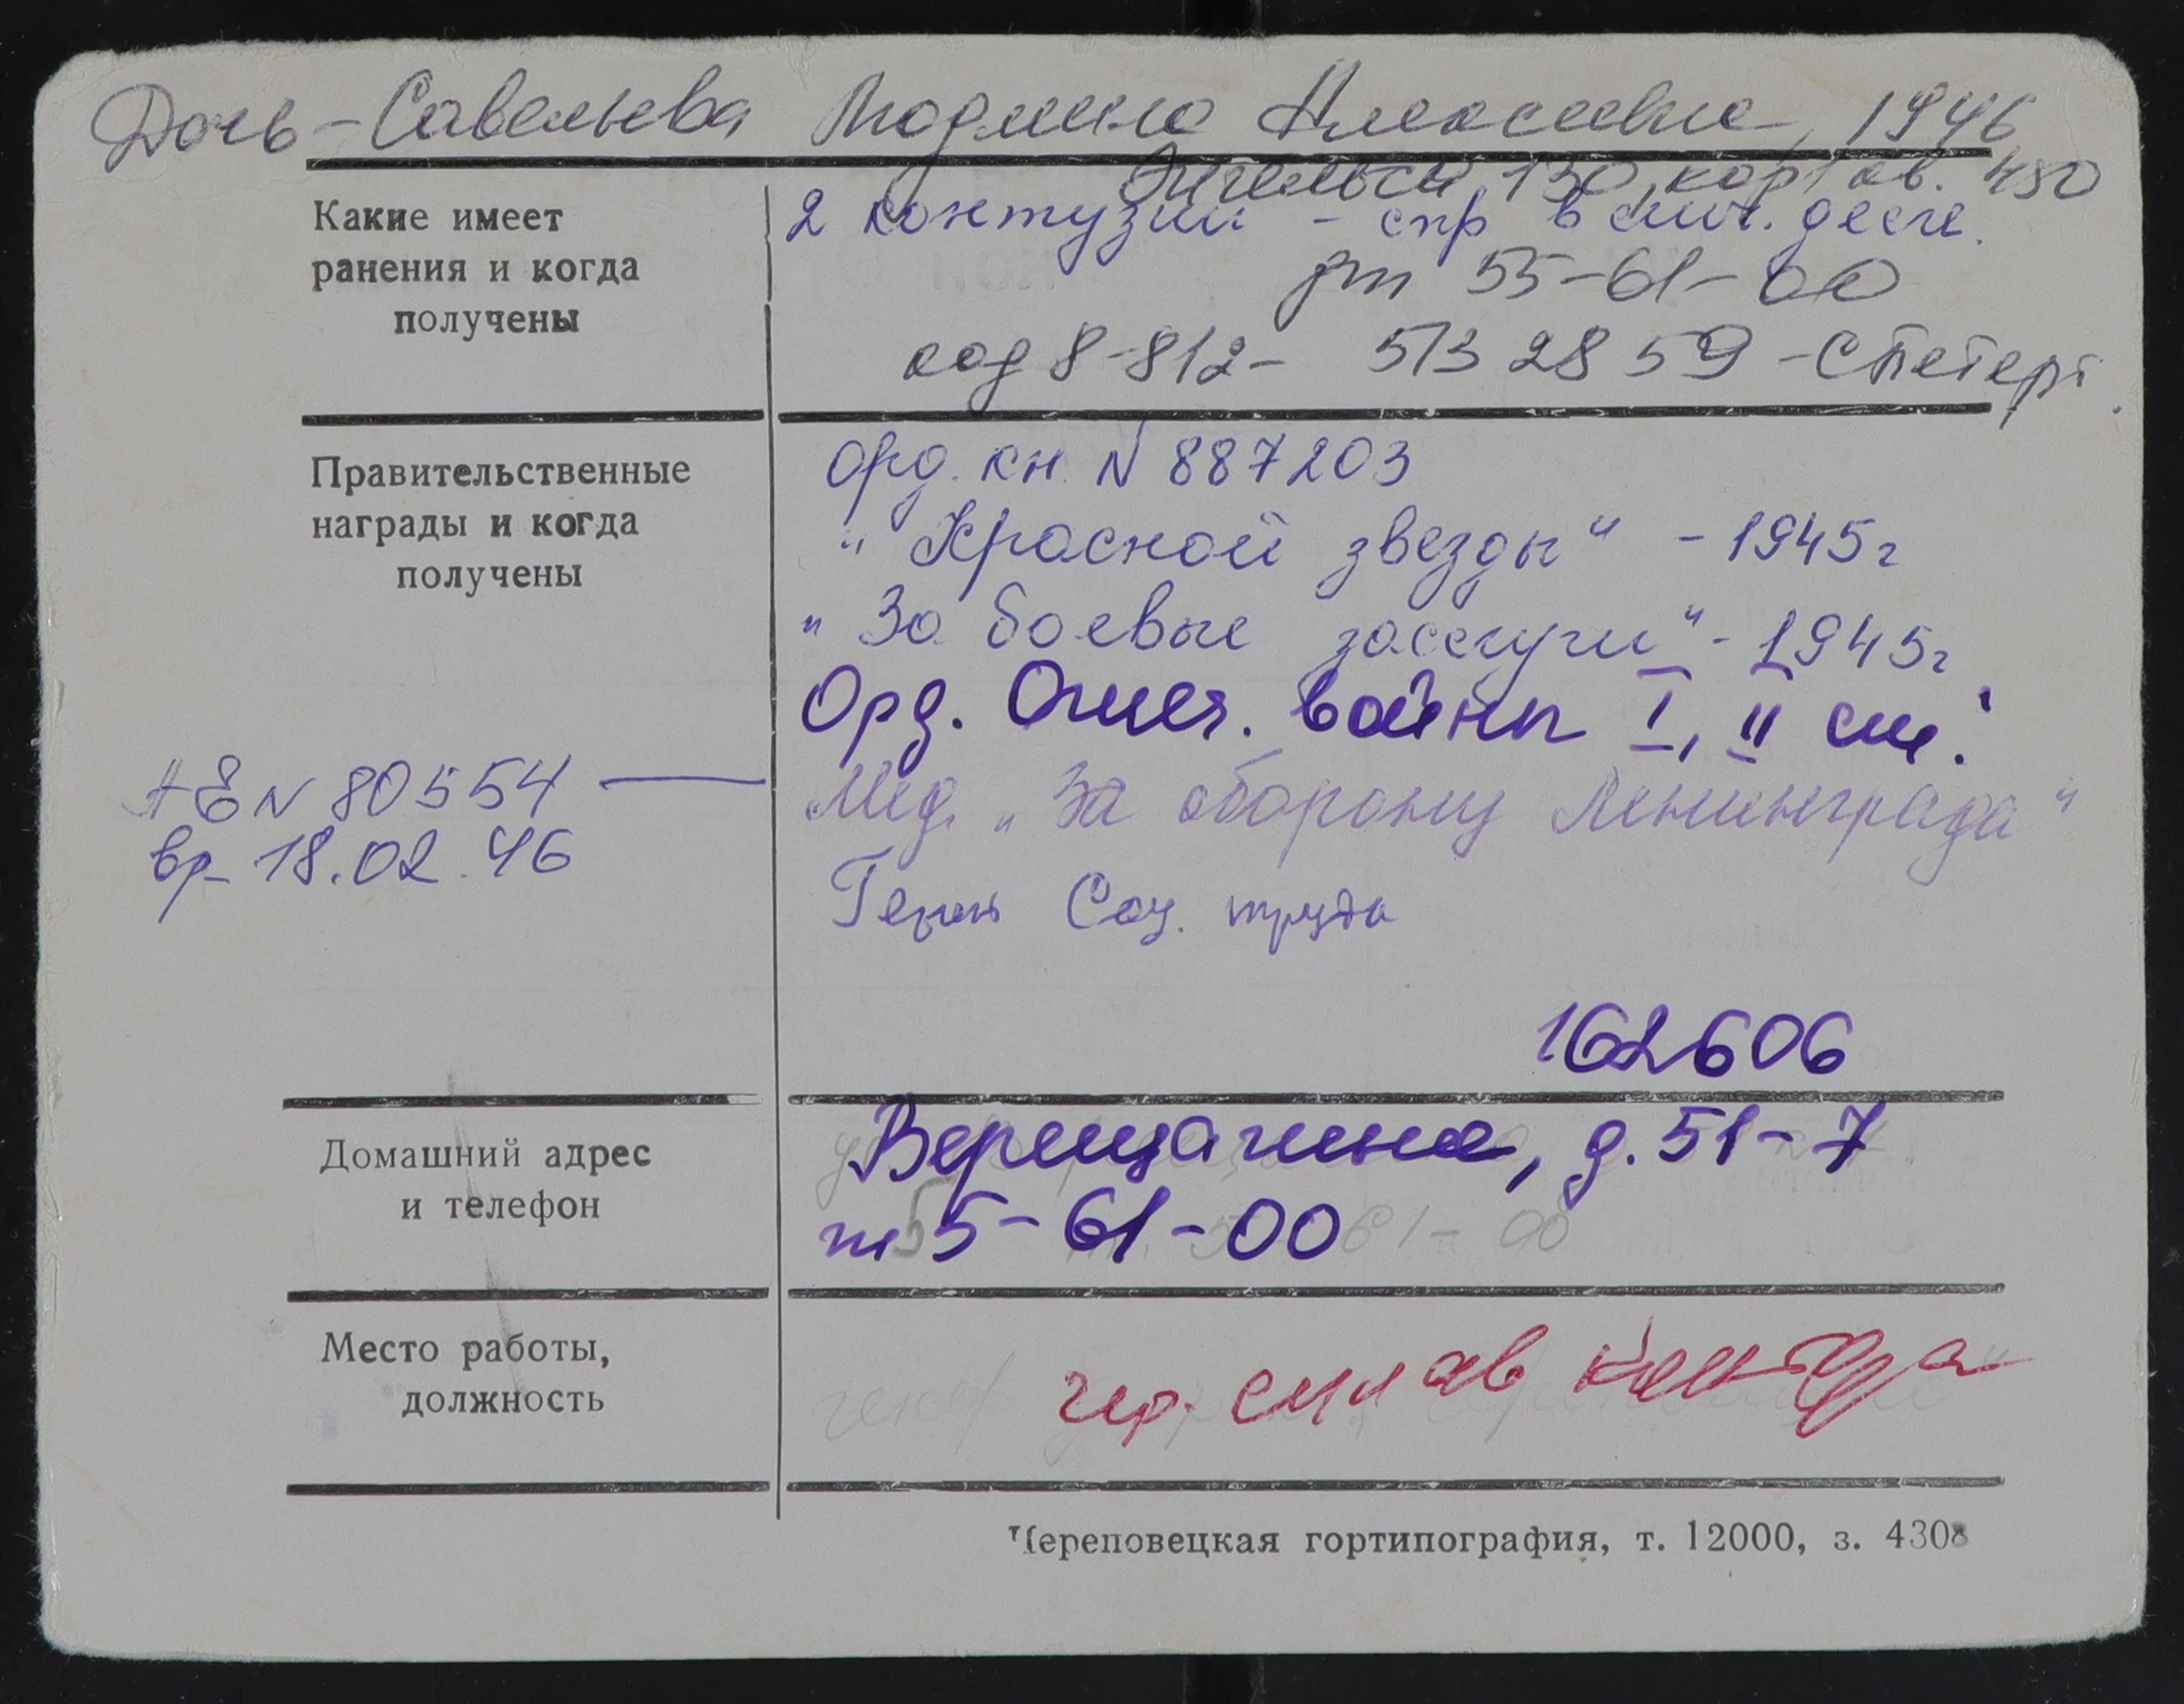 Дочь - Савельева Людмила Алексеевна, 1946
Энгельса, 130, кор 1 кв. 450
Какие имеет
ранения и когда
получены
2 контузии - спр в лич. деле.
дт 55-61-00
код 8-812- 513 28 59 - СПетерб.
Правительственные
награды и когда
получены
Орд. кн. N 887203
"Красной звезды" - 1945г
"За боевые заслуги" - 1945г
Орд. Отеч. войны I, II ст.
Мед. "За оборону Ленинграда"
АЕ N 80554
вр. 18.02.46
Герой Соц. труда
162606
Домашний адрес
и телефон
Верещагина, д. 51-7
т 55-61-00
Место работы,
должность
Череповецкая гортипография, т. 12000, з. 4308